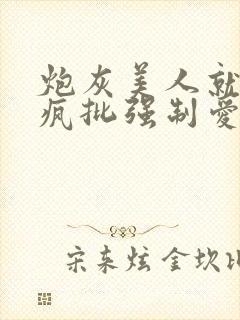 炮灰美人就
疯批强制爱
宋来炫金坎比